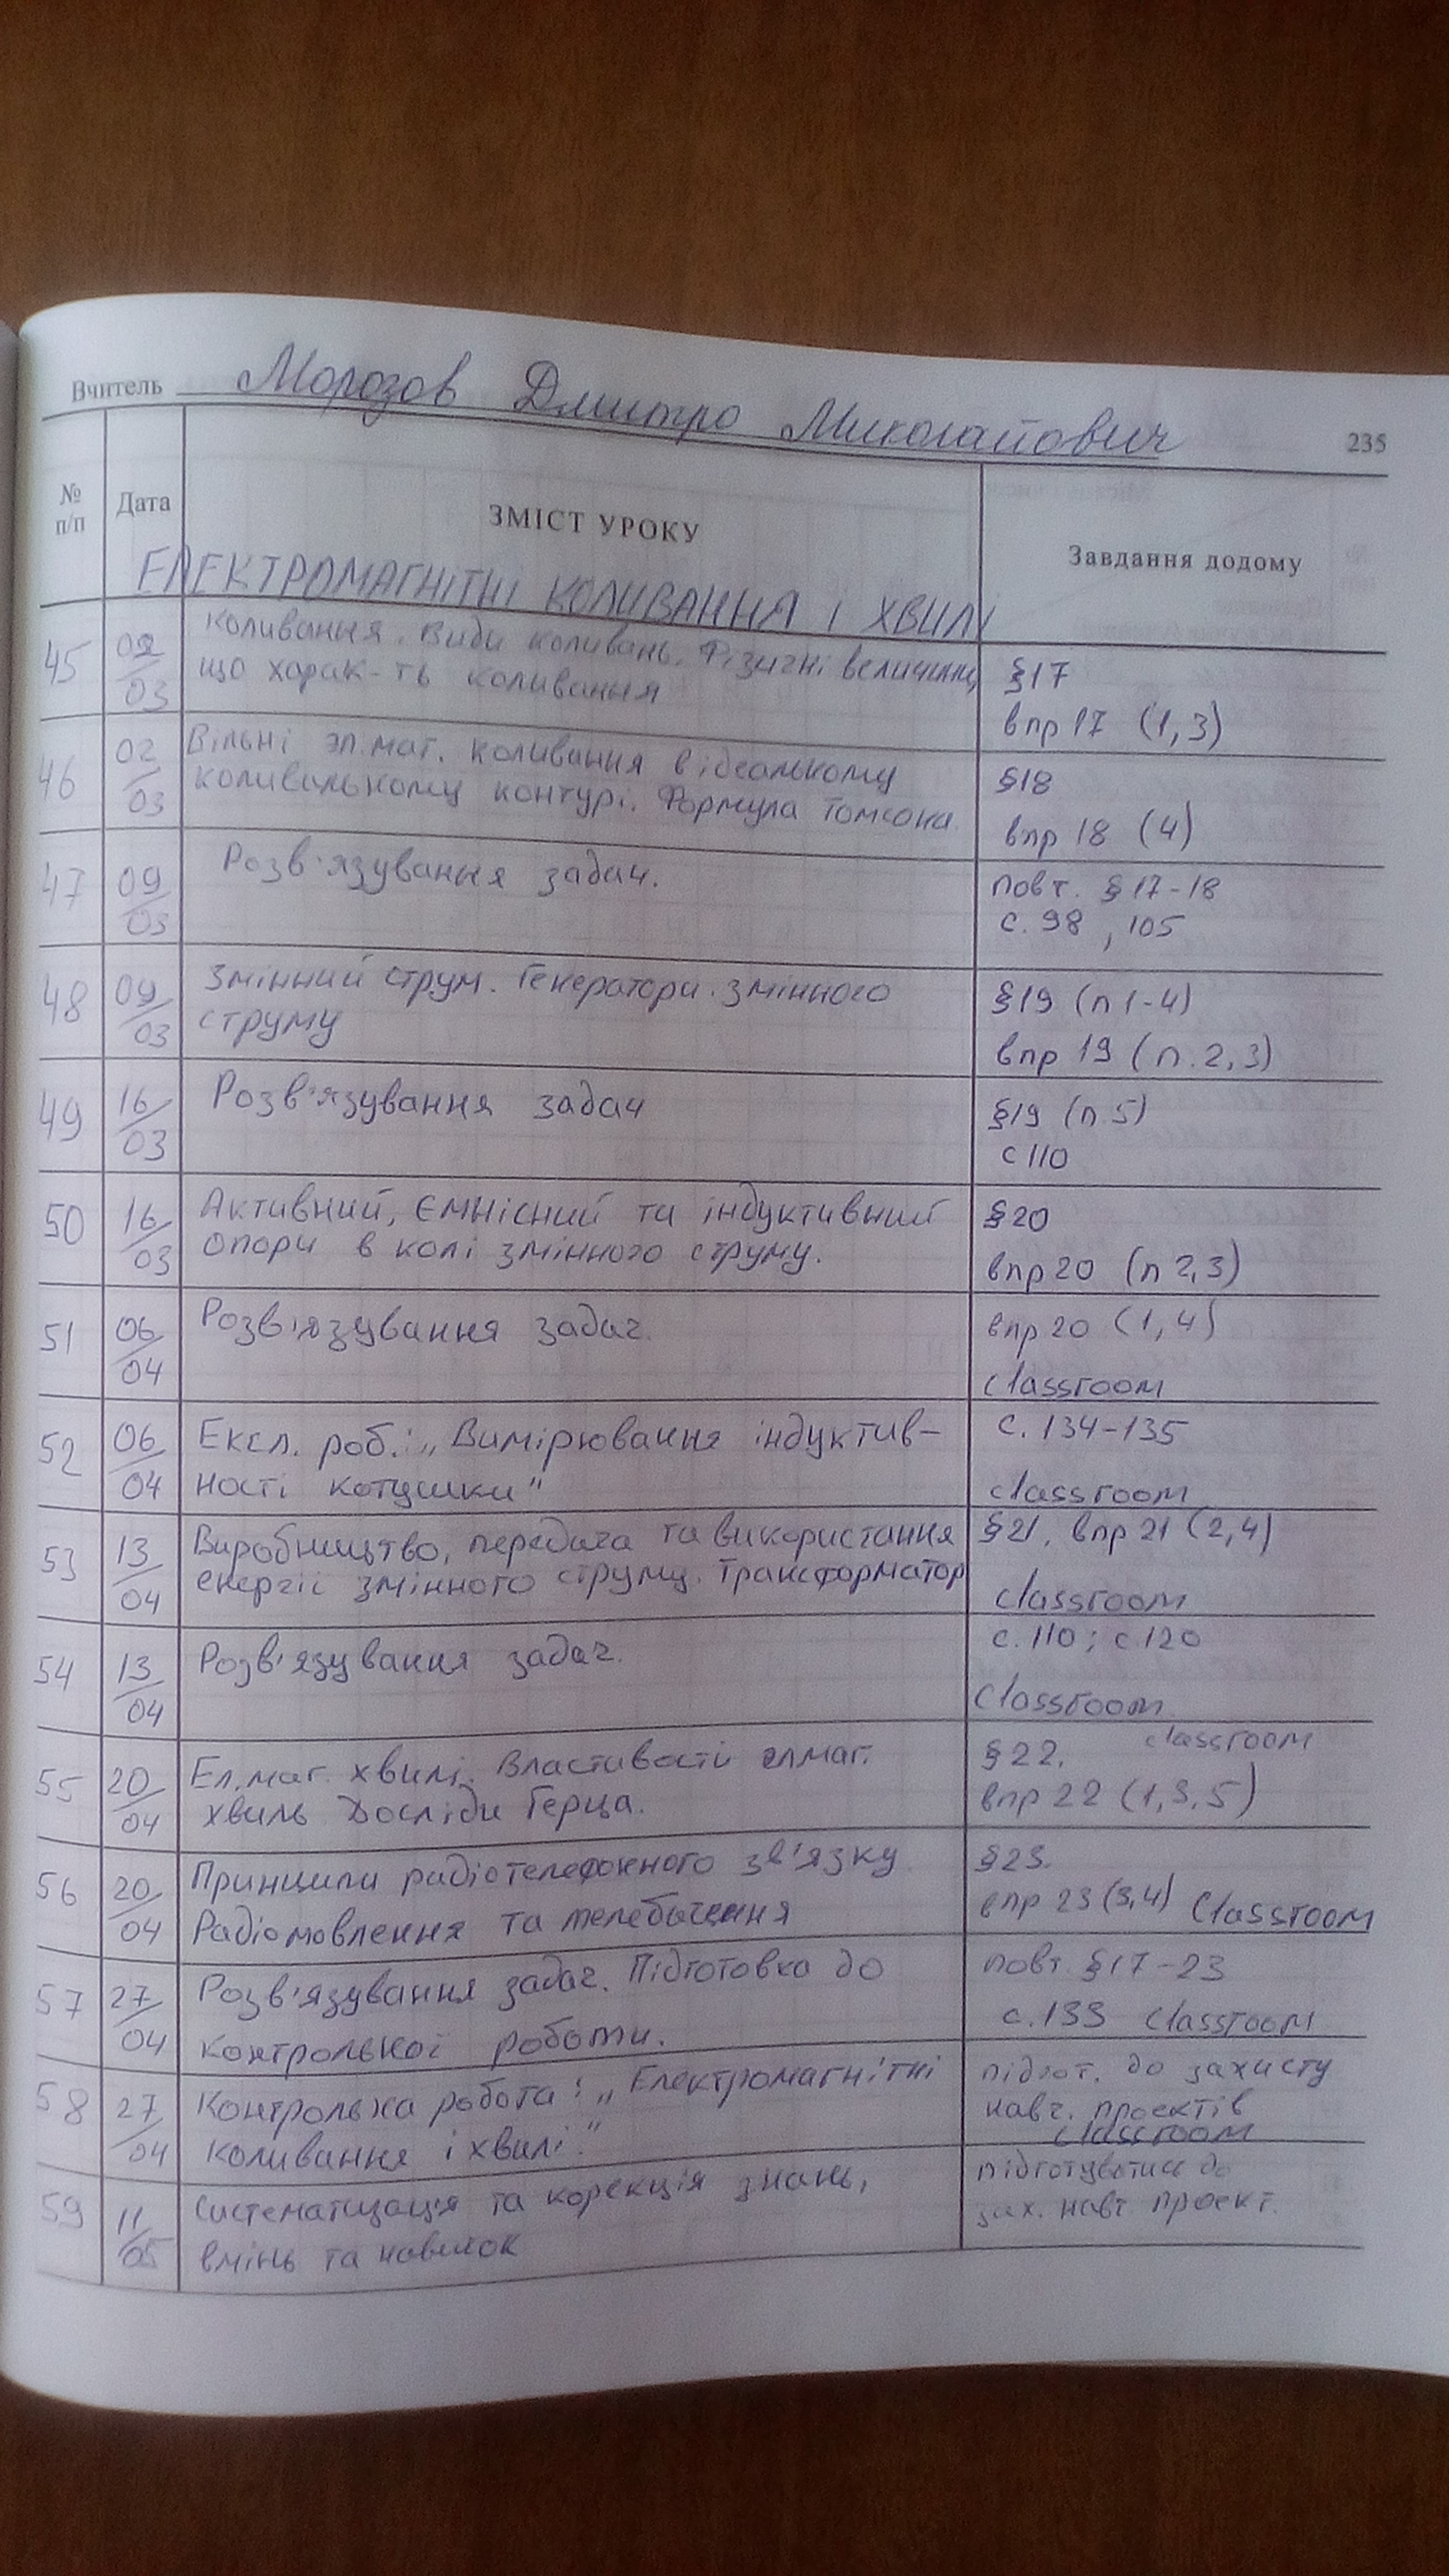 Вчитель Морозов Дмитро Миколайович
235
№ п/п
Дата
ЗМІСТ УРОКУ
Завдання додому
ЕЛЕКТРОМАГНІТНІ КОЛИВАННЯ І ХВИЛІ
45 02/03 Коливання. Види коливань. Фізичні величини, §17
що харак-ть коливання впр 17 (1,3)
46 02/03 Вільні эл.маг. коливання в ідеальному §18
коливальному контурі. Формула Томсона. впр 18 (4)
47 09/03 Розв'язування задач. повт. §17-18
с. 98, 105
48 09/03 Змінний струм. Генератори змінного §19 (п 1-4)
струму впр 19 (п. 2,3)
49 16/03 Розв'язування задач §19 (п 5)
с 110
50 16/03 Активний, ємнісний та індуктивний §20
опори в колі змінного струму. впр 20 (п 2,3)
51 06/04 Розв'язування задач. впр 20 (1,4)
classroom
52 06/04 Ексл. роб.: „Вимірювання індуктив- с. 134-135
ності котушки" classroom
53 13/04 Виробництво, передача та використання §21, впр 21 (2,4)
енергії змінного струму. Трансформатор classroom
54 13/04 Розв'язування задач. с. 110; с.120
Classroom
55 20/04 Ел.маг. хвилі. Властивості елмаг. §22. classroom
хвиль Досліди Герца. впр 22 (1,3,5)
56 20/04 Принципи радіотелефонного зв'язку §23.
Радіомовлення та телебачення впр 23 (3,4) Classroom
57 27/04 Розв'язування задач. Підготовка до повт. §17-23
контрольної роботи. с.133 Classroom
58 27/04 Контрольна робота: „Електромагнітні підгот. до захисту
коливання і хвилі." навч. проектів
classroom
59 11/05 Систематизація та корекція знань, підготуватись до
вмінь та навичок зах. навч проект.